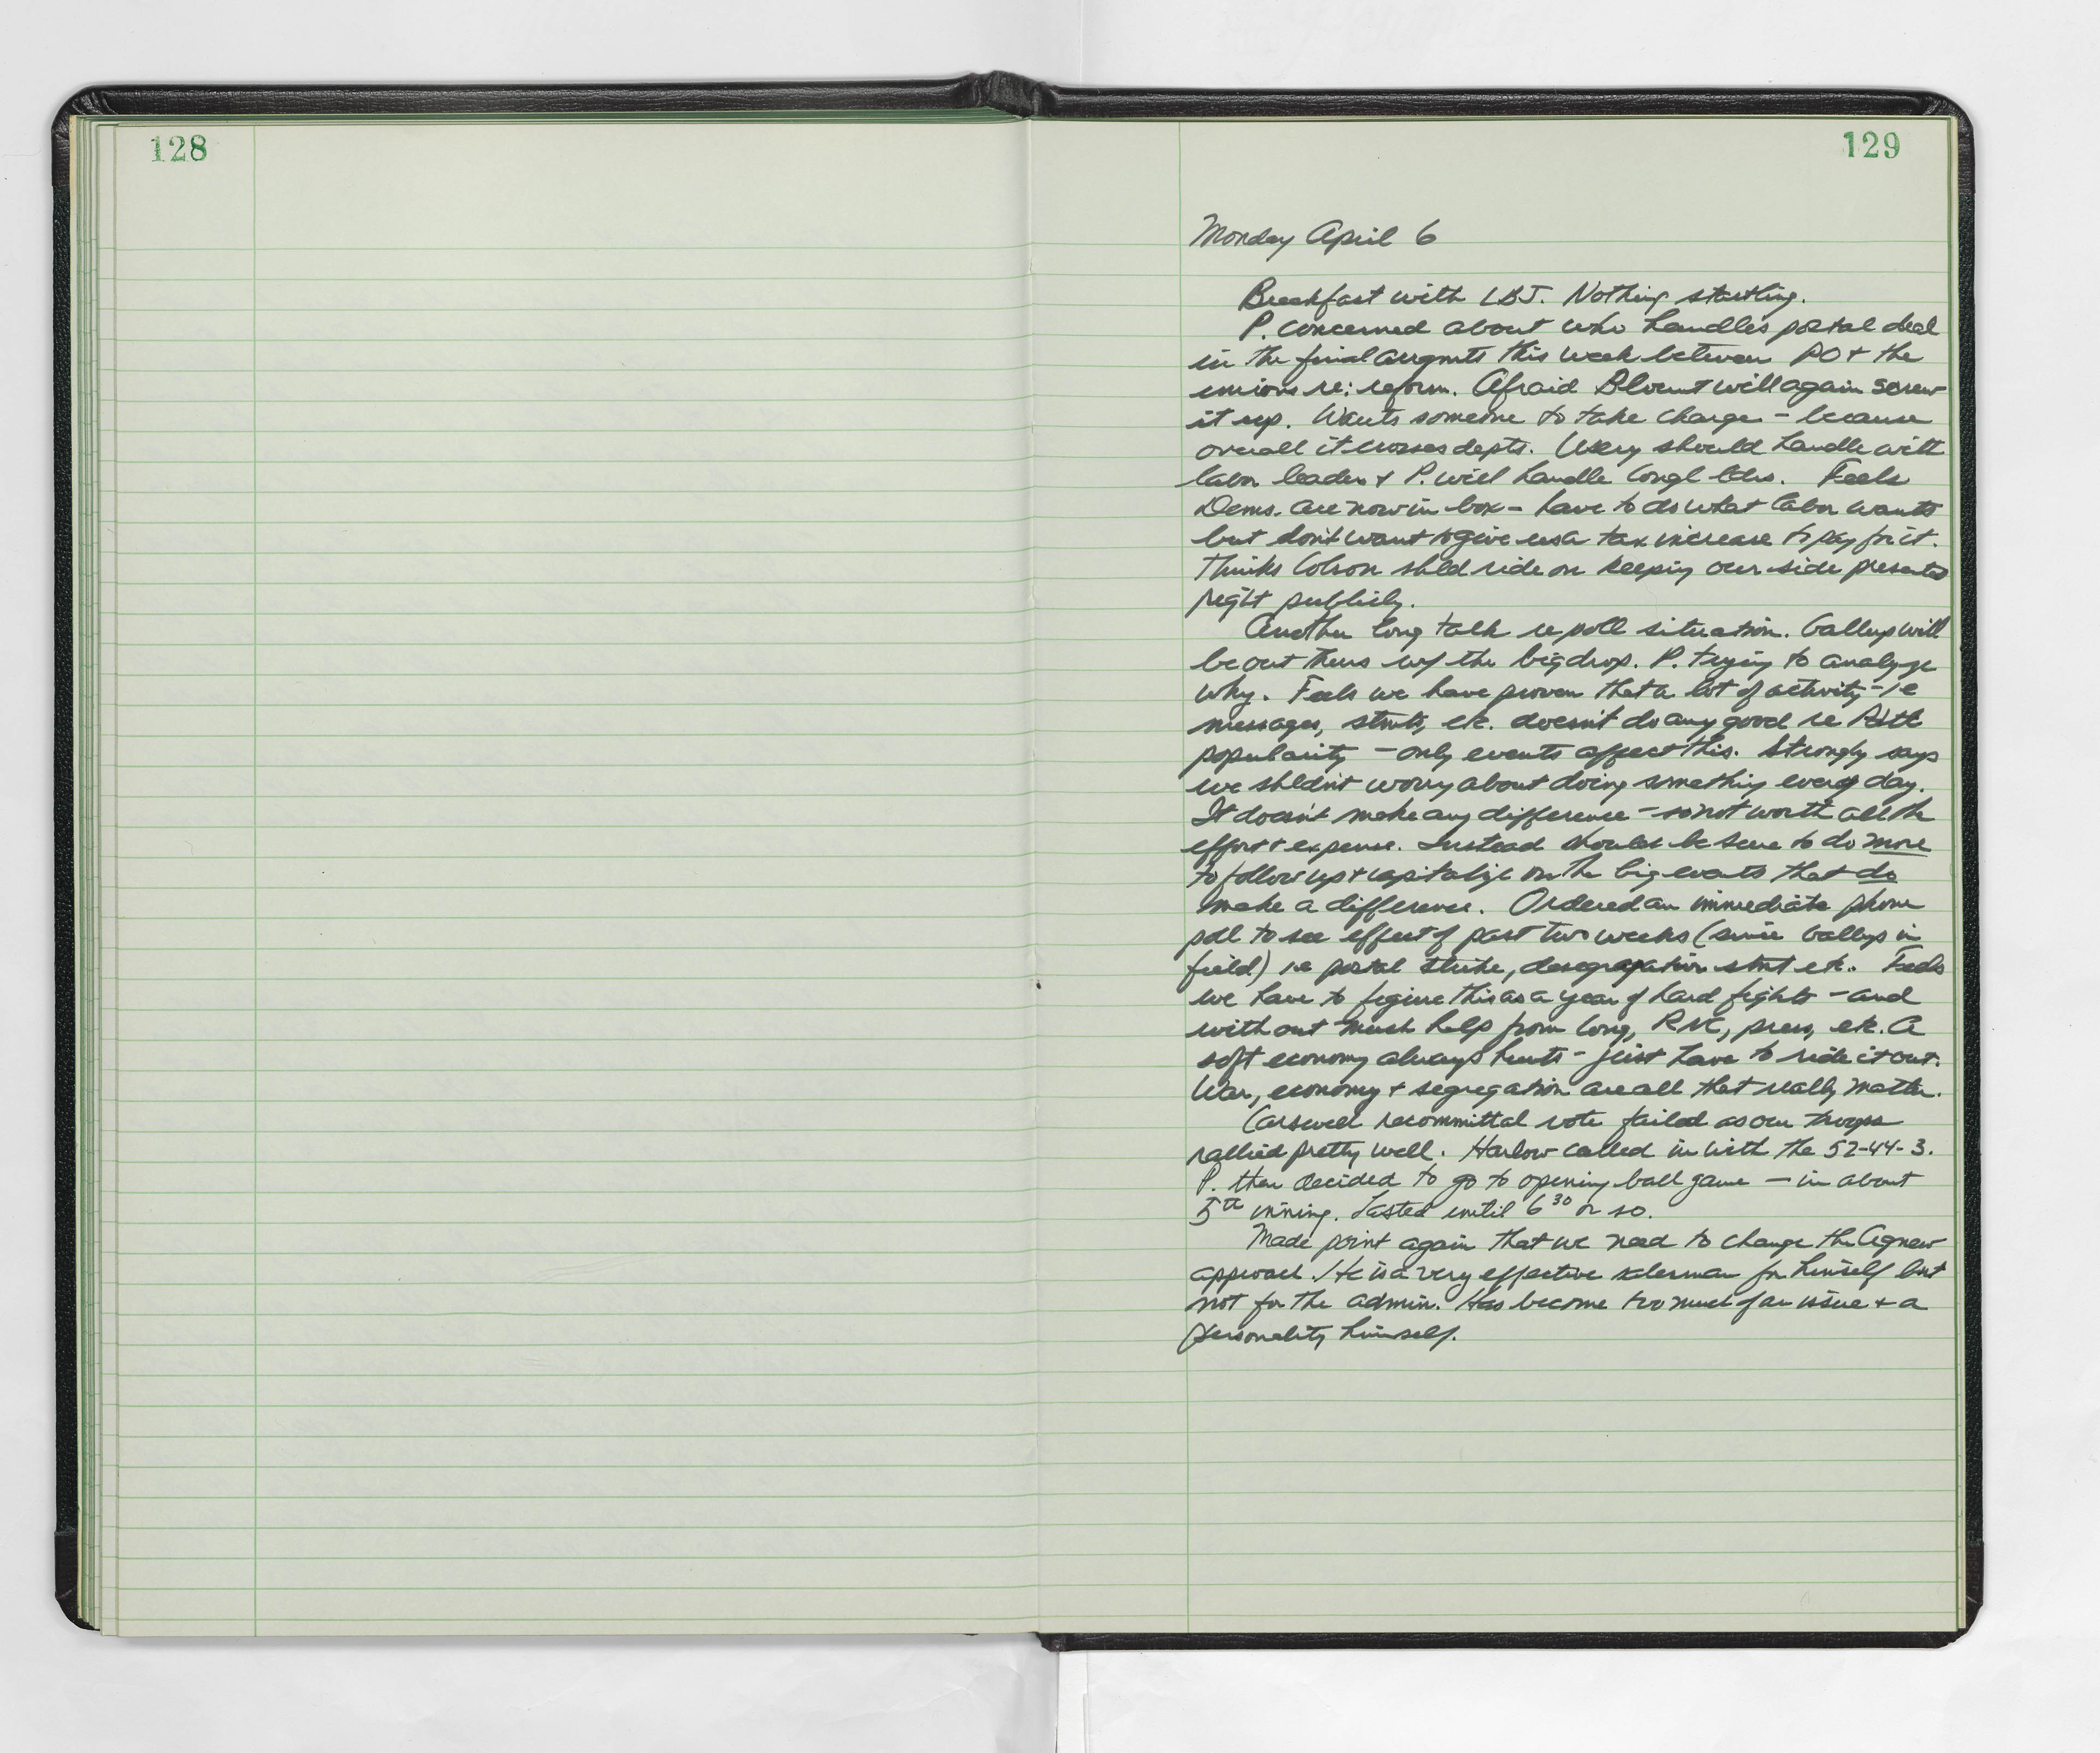 128
129
Monday April 6
Breakfast with LBJ. Nothing startling.
P. concerned about who handles postal deal
in the final arrgmts this week between PO + the
unions re: reform. Afraid Blount will again screw
it up. Wants someone to take charge - because
overall it crosses depts. Usery should handle with
labor leaders + P. will handle Congl ldrs. Feels
Dems. are now in box - have to do what labor wants
but don't want to give us a tax increase to pay for it.
Thinks Colson shld ride on keeping our side presented
right publicly.
Another long talk re poll situation. Gallup will
be out Thurs w/ the big drop. P. trying to analyze
why. Feels we have proven that a lot of activity - ie
messages, stmts, etc. doesn't do any good re
popularity - only events affect this. Strongly says
we shldn't worry about doing something every day.
It doesn't make any difference - so not worth all the
effort + expense. Instead should be sure to do more
to follow up + capitalize on the big events that do
make a difference. Ordered an immediate phone
poll to see effect of past two weeks (since Gallup in
field) ie postal strike, desegregation stmt etc. Feels
we have to figure this as a year of hard fights - and
without much help from Cong, RNC, press, etc. A
soft economy always hurts - just have to ride it out.
War, economy + segregation are all that really matter.
Carswell recommittal vote failed as our troops
rallied pretty well. Harlow called in with the 52-44-3.
P. then decided to go to opening ball game - in about
5th inning. Lasted until 6 30 or so.
Made point again that we need to change the Agnew
approach. He is a very effective salesman for himself but
not for the admin. Has become too much of an issue + a
personality himself.